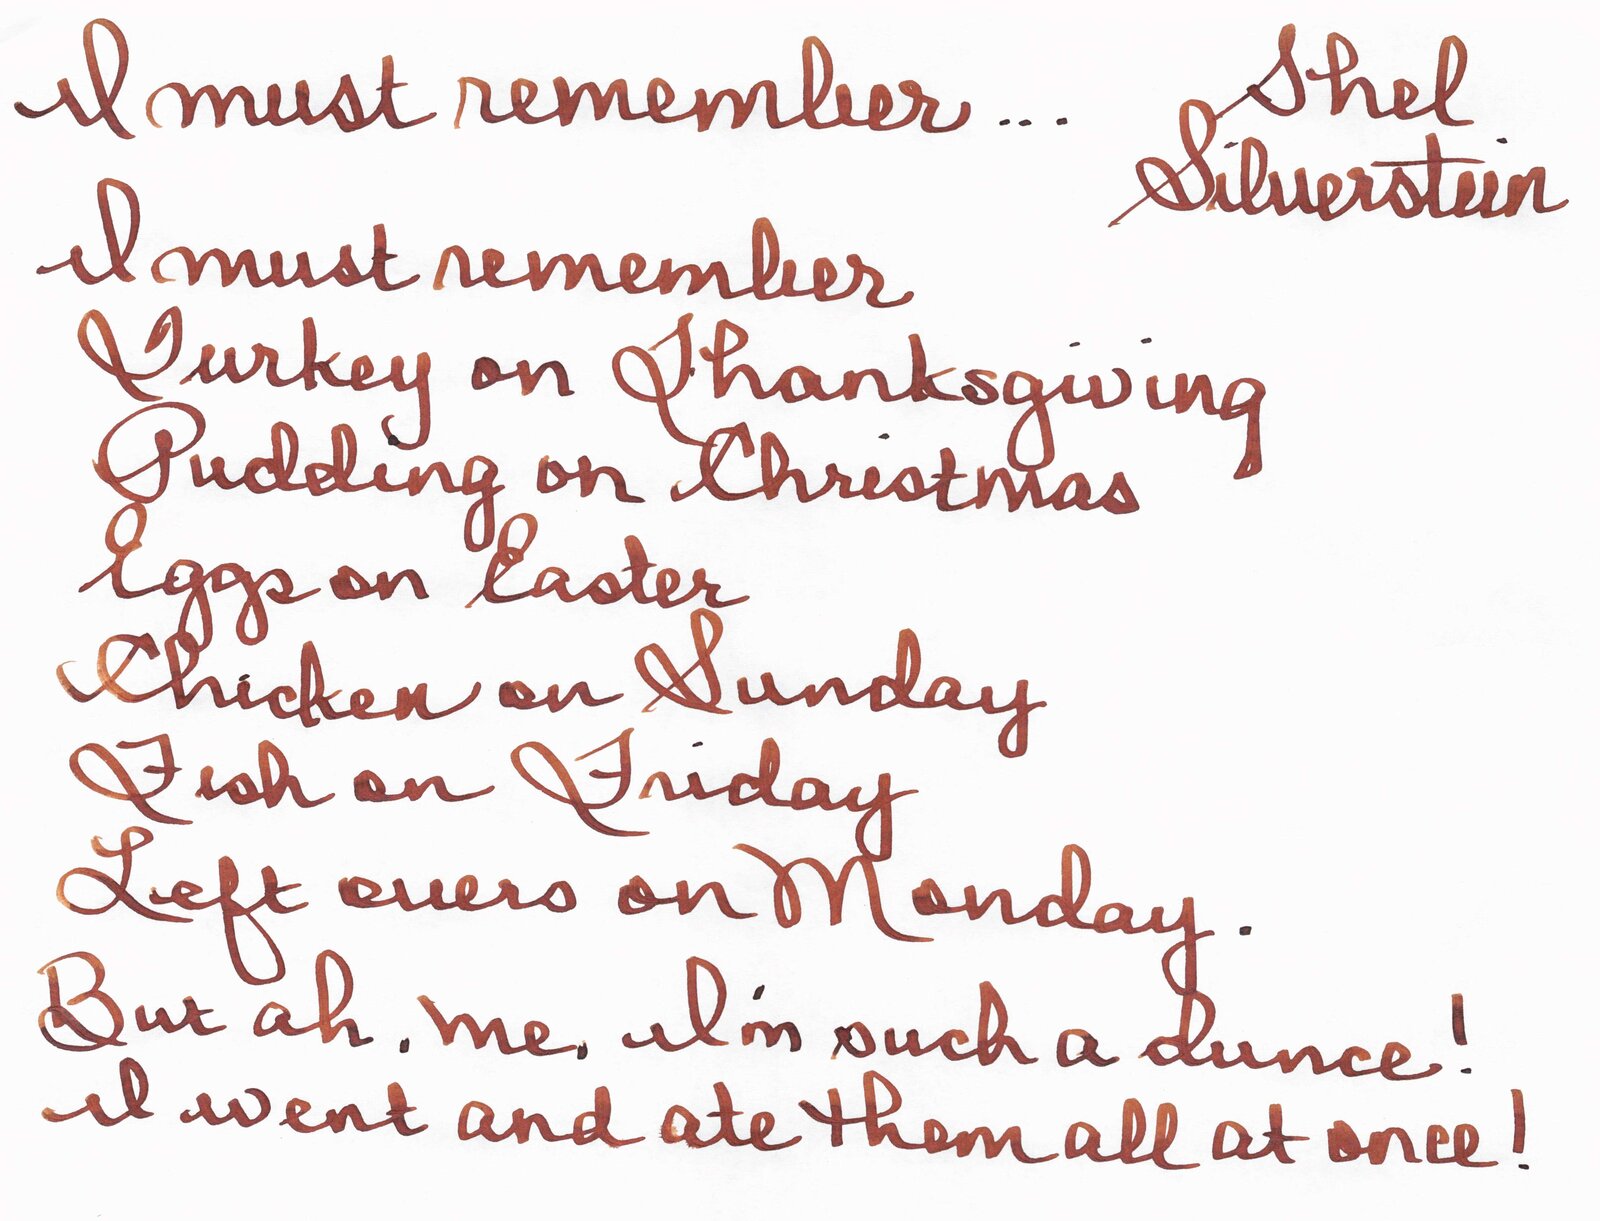 I must remember...
Shel
Silverstein
I must remember
Turkey on Thanksgiving
Pudding on Christmas
Eggs on Easter
Chicken on Sunday
Fish on Friday
Left overs on Monday.
But ah, me, I'm such a dunce!
I went and ate them all at once!